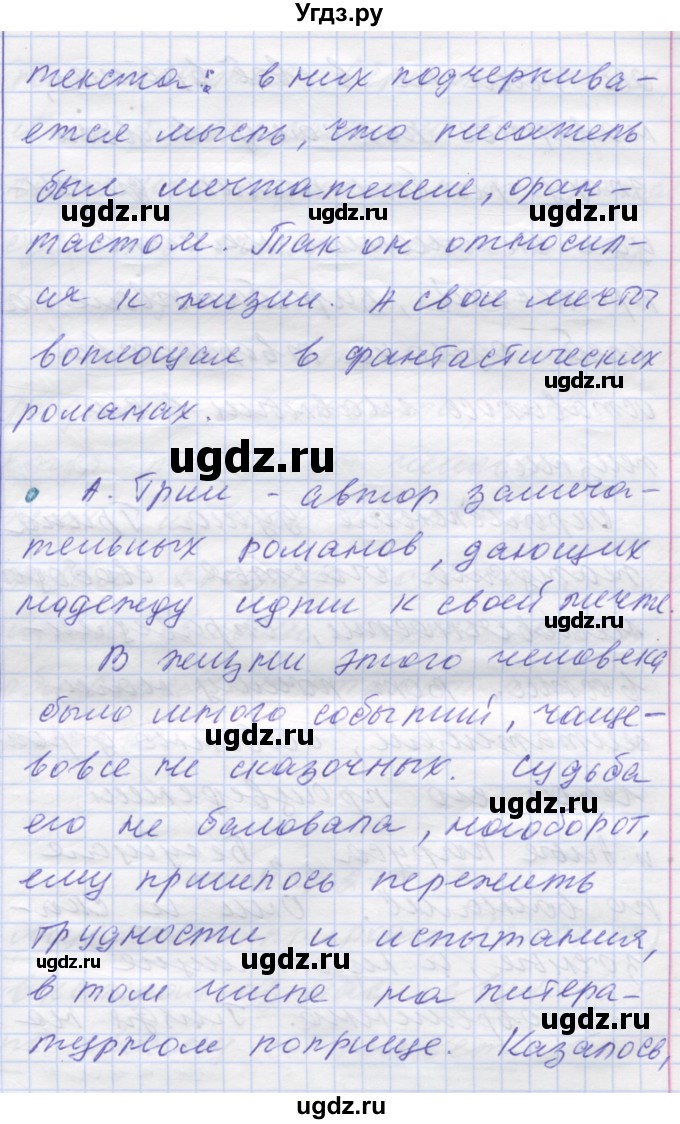 Угдз.ру
текста: в них подчеркива-
ется мысль, что писатель
был мечтателем, фран-
ugdz.ru ugdz.ru
тастом. Так он относил-
ся к жизни. А свои мечты
воплощал в фантастических
ugdz.ru
романах.
ugdz.ru
А. Грин - автор замеча-
тельных романов, дающих
надежду идти к своей мечте.
ugdz.ru
В жизни этого человека
было много событий, чаще-
ugdz.ru
вовсе не сказочных. Судьба
ugdz.ru
его не баловала, наоборот,
ему пришлось пережить
трудности и испытания,
ugdz.ru ugdz.ru
в том числе на литера-
ugdz.ru
турном поприще. Казалось,
ugdz.ru